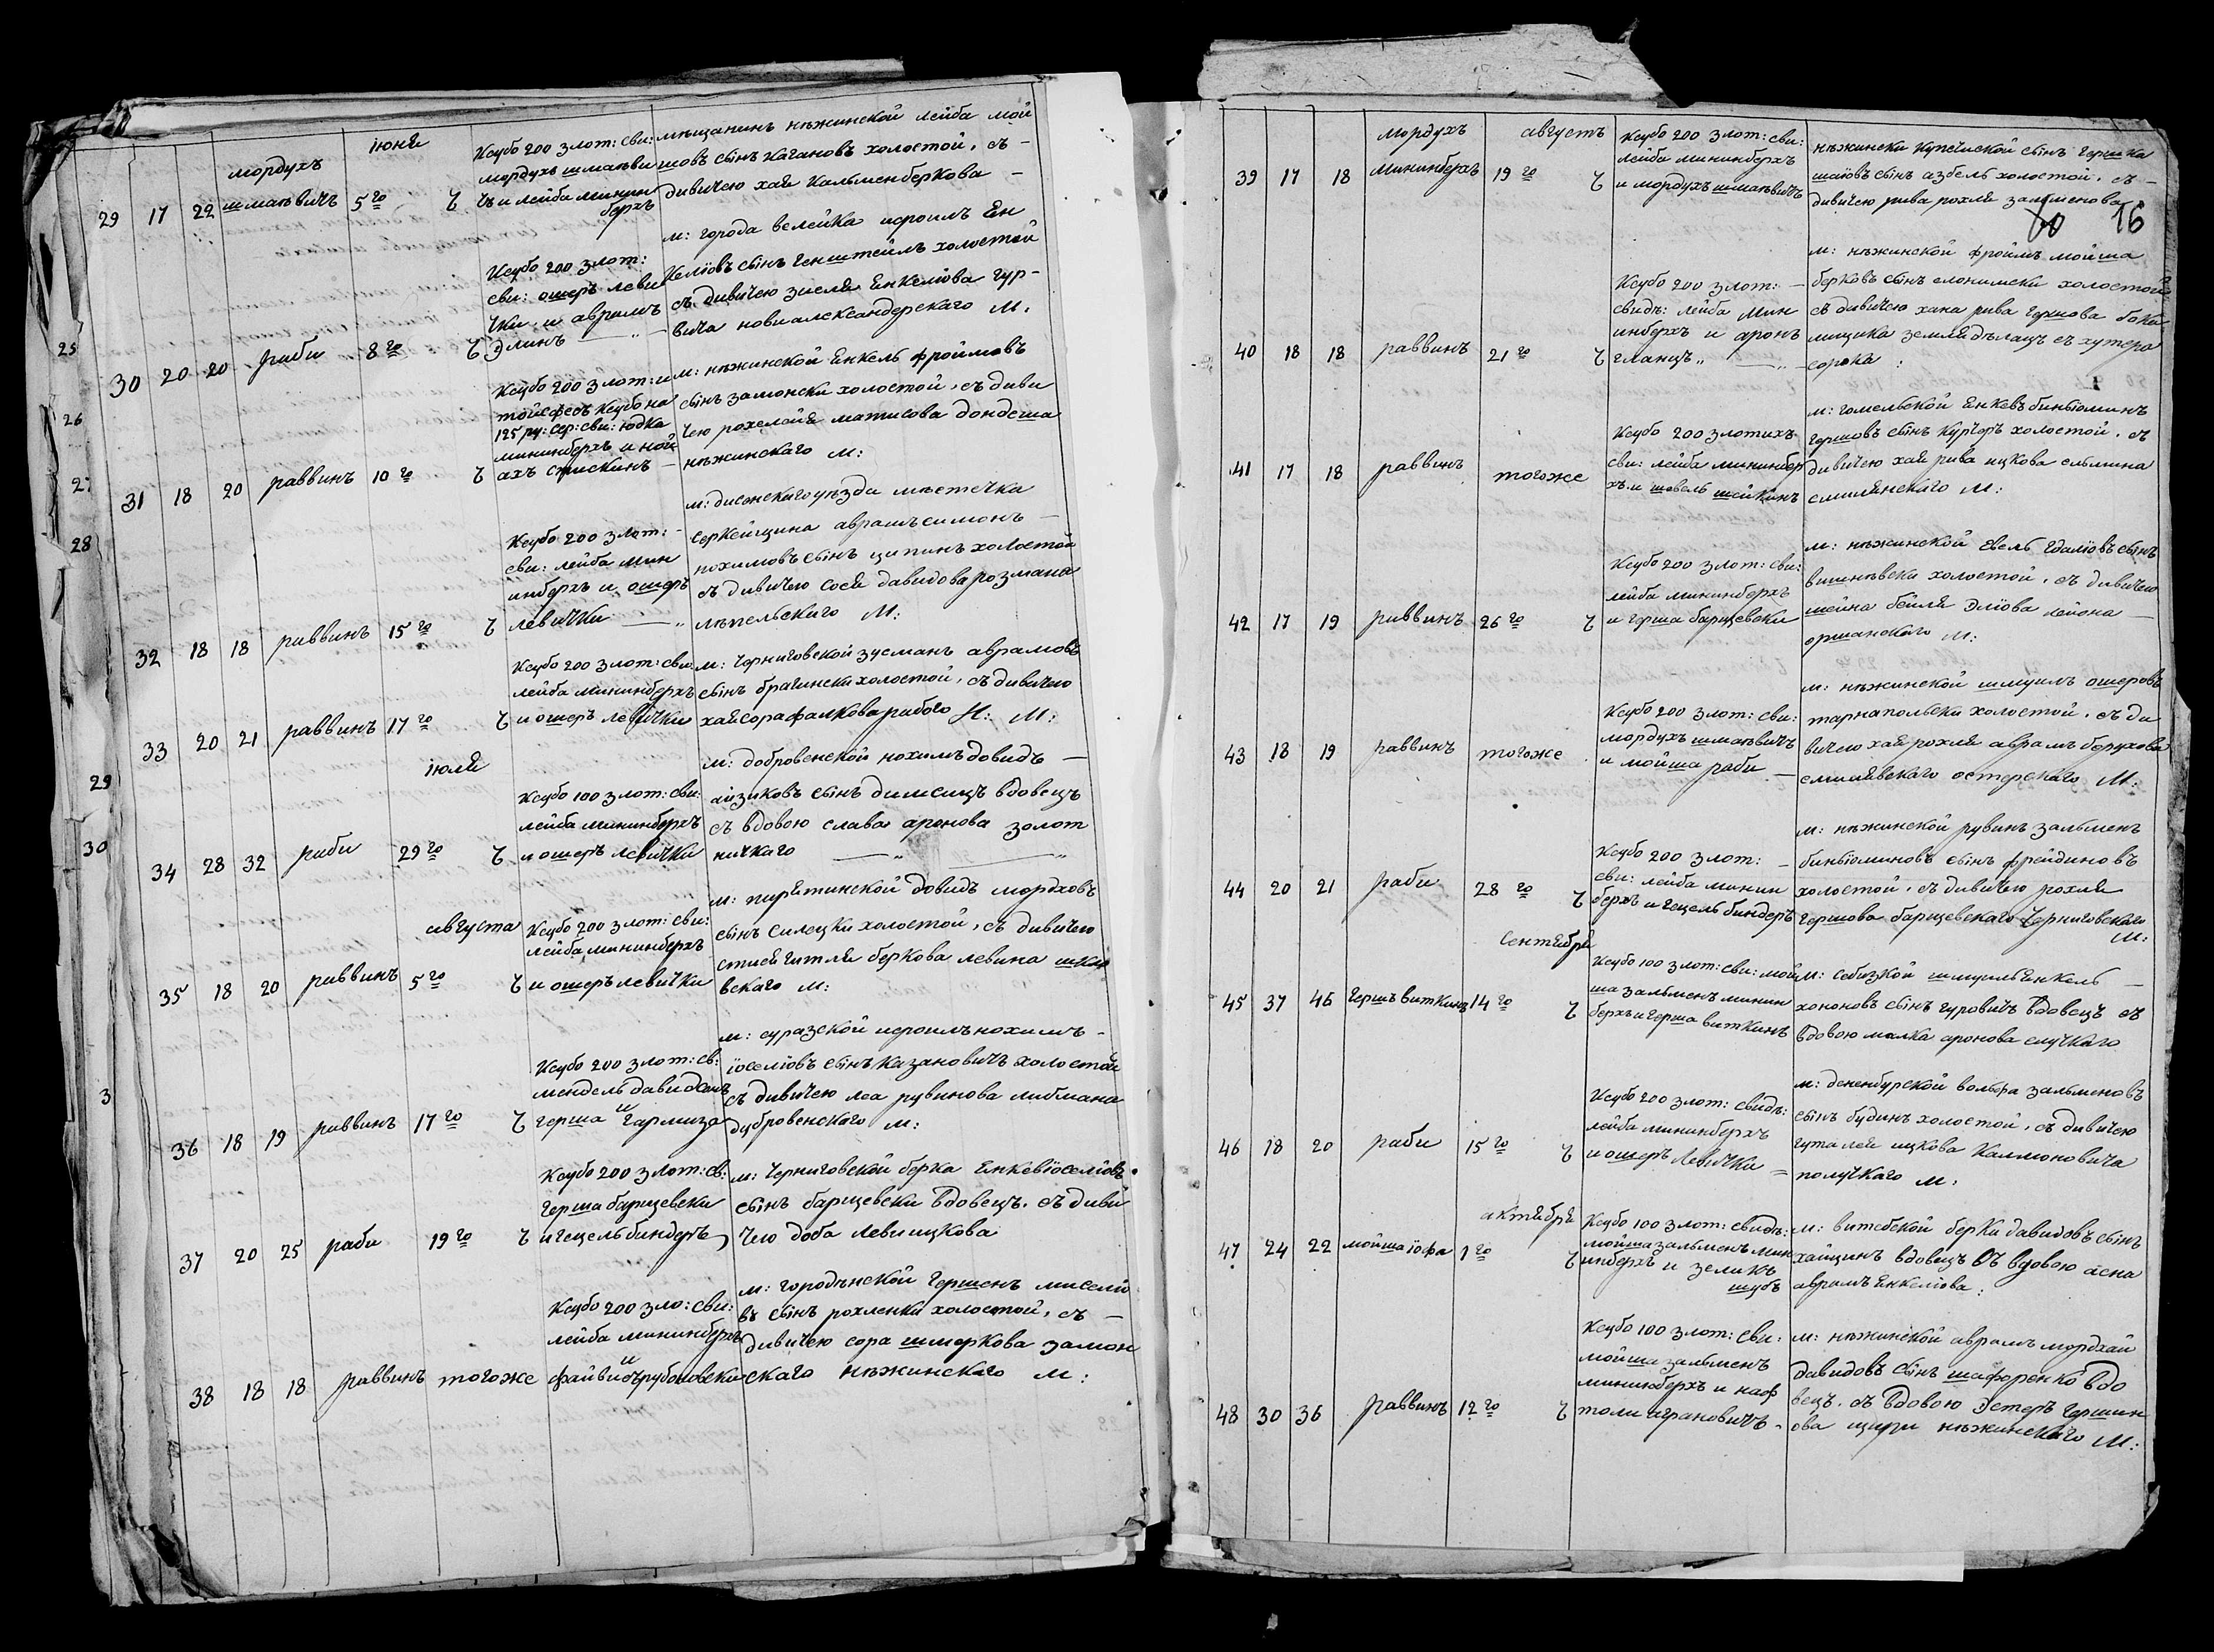 июня
мордухъ
29 17 22 шмаѣвичъ 5го
Ксубо 200 злот: сви:
мордухъ шмаѣви
чъ и лейба минин
берхъ
мѣщанинъ нѣжинской лейба мой
шовъ сынъ кагановъ холостой, съ
дивичею хая кальменберкова
30 20 20 раби 8го
Ксубо 200 злот:
сви: ошеръ леви
чки, и аврамъ
Элинъ
м: города велейка исроилъ Ен
келіовъ сынъ генштейлъ холостой
съ дивичею зисля Енкеліова гур-
вича новиалександерскаго М.
31 18 20 раввинъ 10го
Ксубо 200 злот: и
тойсфесъ Ксубо на
125 ру: сер: сви: юдка
мининберхъ и ной
ахъ
м: нѣжинской Енкель фроймовъ
сынъ замонски холостой, съ диви
чею рохелоія матисова дондеша
нѣжинскаго м:
32 18 18 раввинъ 15го
Ксубо 200 злот:
сви: лейба мин
инберхъ и ошеръ
левички
м: дисенскаго уѣзда мѣстечка
серкейщина аврамъ симонъ
нохимовъ сынъ ципинъ холостой
съ дивичею сося давидова розмана
лѣпельскаго М:
33 20 21 раввинъ 17го
Ксубо 200 злот: сви:
лейба мининберхъ
и ошеръ левички
м: Черниговской зусманъ аврамовъ
сынъ брагински холостой, съ дивичею
хая сора фалкова рабого Н: М:
июля
34 28 32 раби 29го
Ксубо 100 злот: сви:
лейба мининберхъ
и ошеръ левички
м: добровенской нохимъ довидъ
айзиковъ сынъ димсицъ вдовецъ
съ вдовою слава аронова золот
ничкаго
августа
35 18 20 раввинъ 5го
Ксубо 200 злот: сви:
лейба мининберхъ
и ошеръ левички
м: пирятинской довидъ мордховъ
сынъ силецки холостой, съ дивичею
стися гитля беркова левина шкло
вскаго м:
36 18 19 раввинъ 17го
Ксубо 200 злот: св:
мендель давидсонъ
и
герша гармиза
м: суразской исроилъ нохимъ
іоселіовъ сынъ казановичъ холостой
съ дивичею леа рувинова либмана
дубровенскаго м:
37 20 25 раби 19го
Ксубо 200 злот: св:
герша барщевски
и гецель биндеръ
м: Черниговской берка Енкевіоселіовъ
сынъ барщевски вдовецъ. съ диви
чею доба леви ицкова
38 18 18 раввинъ тогоже
Ксубо 200 зло: сви:
лейба мининберхъ
и
м: городнѣнской гершенъ миселіо
въ сынъ рохленки холостой, съ
дивичею сора шмеркова замон
скаго нѣжинскаго м:
августъ
мордухъ
39 17 18 мининберхъ 19го
Ксубо 200 злот: сви:
лейба мининберхъ
и мордухъ шмаѣвичъ
нѣжински купеческой сынъ гершка
шаіовъ сынъ азбель холостой. съ
дивичею рива рохля залменова
16
40 18 18 раввинъ 21го
Ксубо 200 злот:
свидъ: лейба мин
инберхъ и аронъ
гланцъ
м: нѣжинской фроймъ мойша
берковъ сынъ слонимски холостой
съ дивичею хана рива гершова бока
мицика земледѣлацъ съ хутера
сорока
41 17 18 раввинъ тогоже
Ксубо 200 злотихъ
сви: лейба мининбер
хъ и шовель шейкинъ
м: гомельской Енкевъ биньіоминъ
гершовъ сынъ курчеръ холостой. съ
дивичею хая рива ицкова ельмина
смилянскаго М:
42 17 19 раввинъ 26го
Ксубо 200 злот: сви:
лейба мининберхъ
и герша барщевски
м: нѣжинской Евель гдаліовъ сынъ
вишнѣвски холостой. съ дивичею
шейна бейля Эліова лейона
оршанскаго М:
43 18 19 раввинъ тогоже
Ксубо 200 злот: сви:
мордухъ шмаѣвичъ
и мойша раби
м: нѣжинской шмуилъ ошеровъ
тарнапольски холостой. съ ди
вичею хая рохля аврамъ борухова
смилявскаго остерскаго М:
44 20 21 раби 28го
Ксубо 200 злот:
сви: лейба минин
берхъ и гецель биндеръ
м: нѣжинской рувинъ зальменъ
биньіоминовъ сынъ фрейдиновъ
холостой. съ дивичею рохля
гершова барщевскаго Черниговскаго
М:
сентября
45 37 46 гершъ виткинъ 14го
Ксубо 100 злот: сви: мой
ша зальменъ минин
берхъ и герша виткинъ
м: себизкой шмуилъ Енкель
хононовъ сынъ гуровичъ вдовецъ съ
вдовою малка аронова случкаго
46 18 20 раби 15го
Ксубо 200 злот: свидъ:
лейба мининберхъ
и ошеръ левички
м: дененбурской вольфа зальменовъ
сынъ будинъ холостой, съ дивичею
гута лея ицкова калмоновича
получкаго м:
актября
47 24 22 мойша іофа 1го
Ксубо 100 злот: свидъ:
мойша зальменъ мин
инберхъ и зеликъ
шубъ
м: витебской берка давидовъ сынъ
хайщинъ вдовецъ съ вдовою асна
аврамъ Енкеліова:
48 30 36 раввинъ 12го
Ксубо 100 злот: сви:
мойша зальменъ
мининберхъ и наф
толи аграновичъ
м: нѣжинской аврамъ мордхай
давидовъ сынъ шафоренко вдо
вецъ. съ вдовою эстеръ гершин
ова щири нѣжинскаго М: